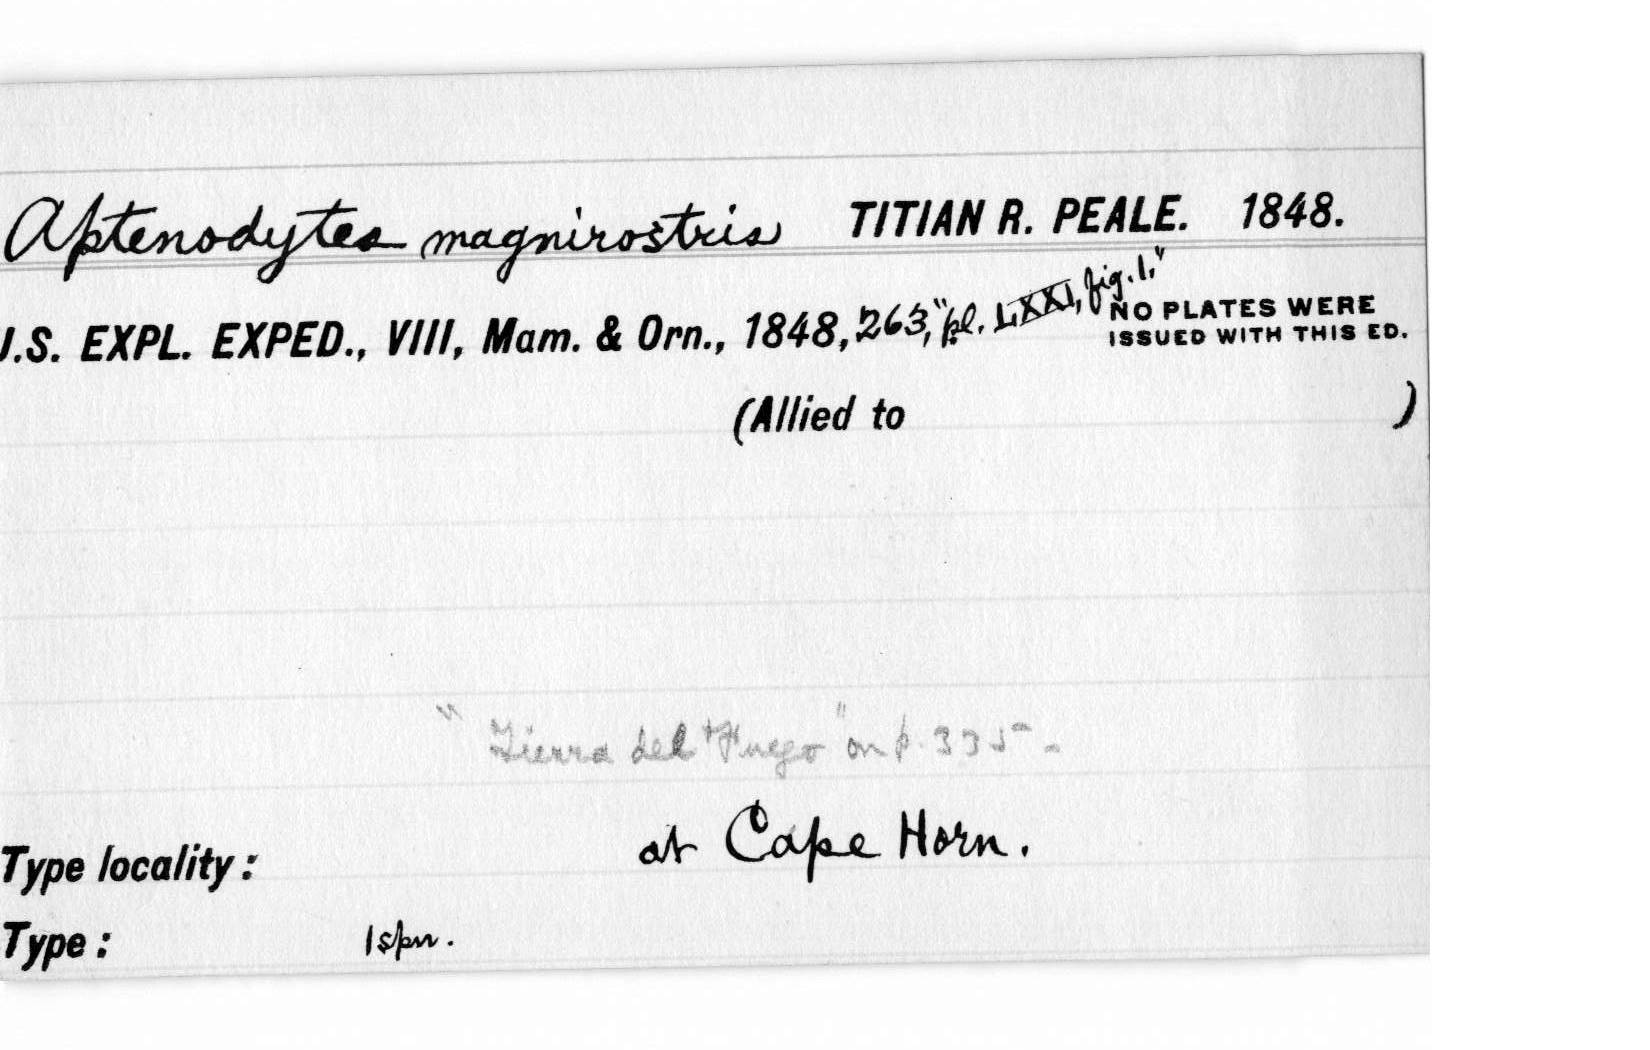 Aptenodytes magnirostris TITIAN R. PEALE. 1848.
U.S. EXPL. EXPED., VIII, Mam. & Orn., 1848, 263, "pl. LXXI, fig. 1."
NO PLATES WERE
ISSUED WITH THIS ED.
(Allied to )
"Tierra del Fuego" on p. 335.
Type locality: at Cape Horn.
Type: 1 spn.